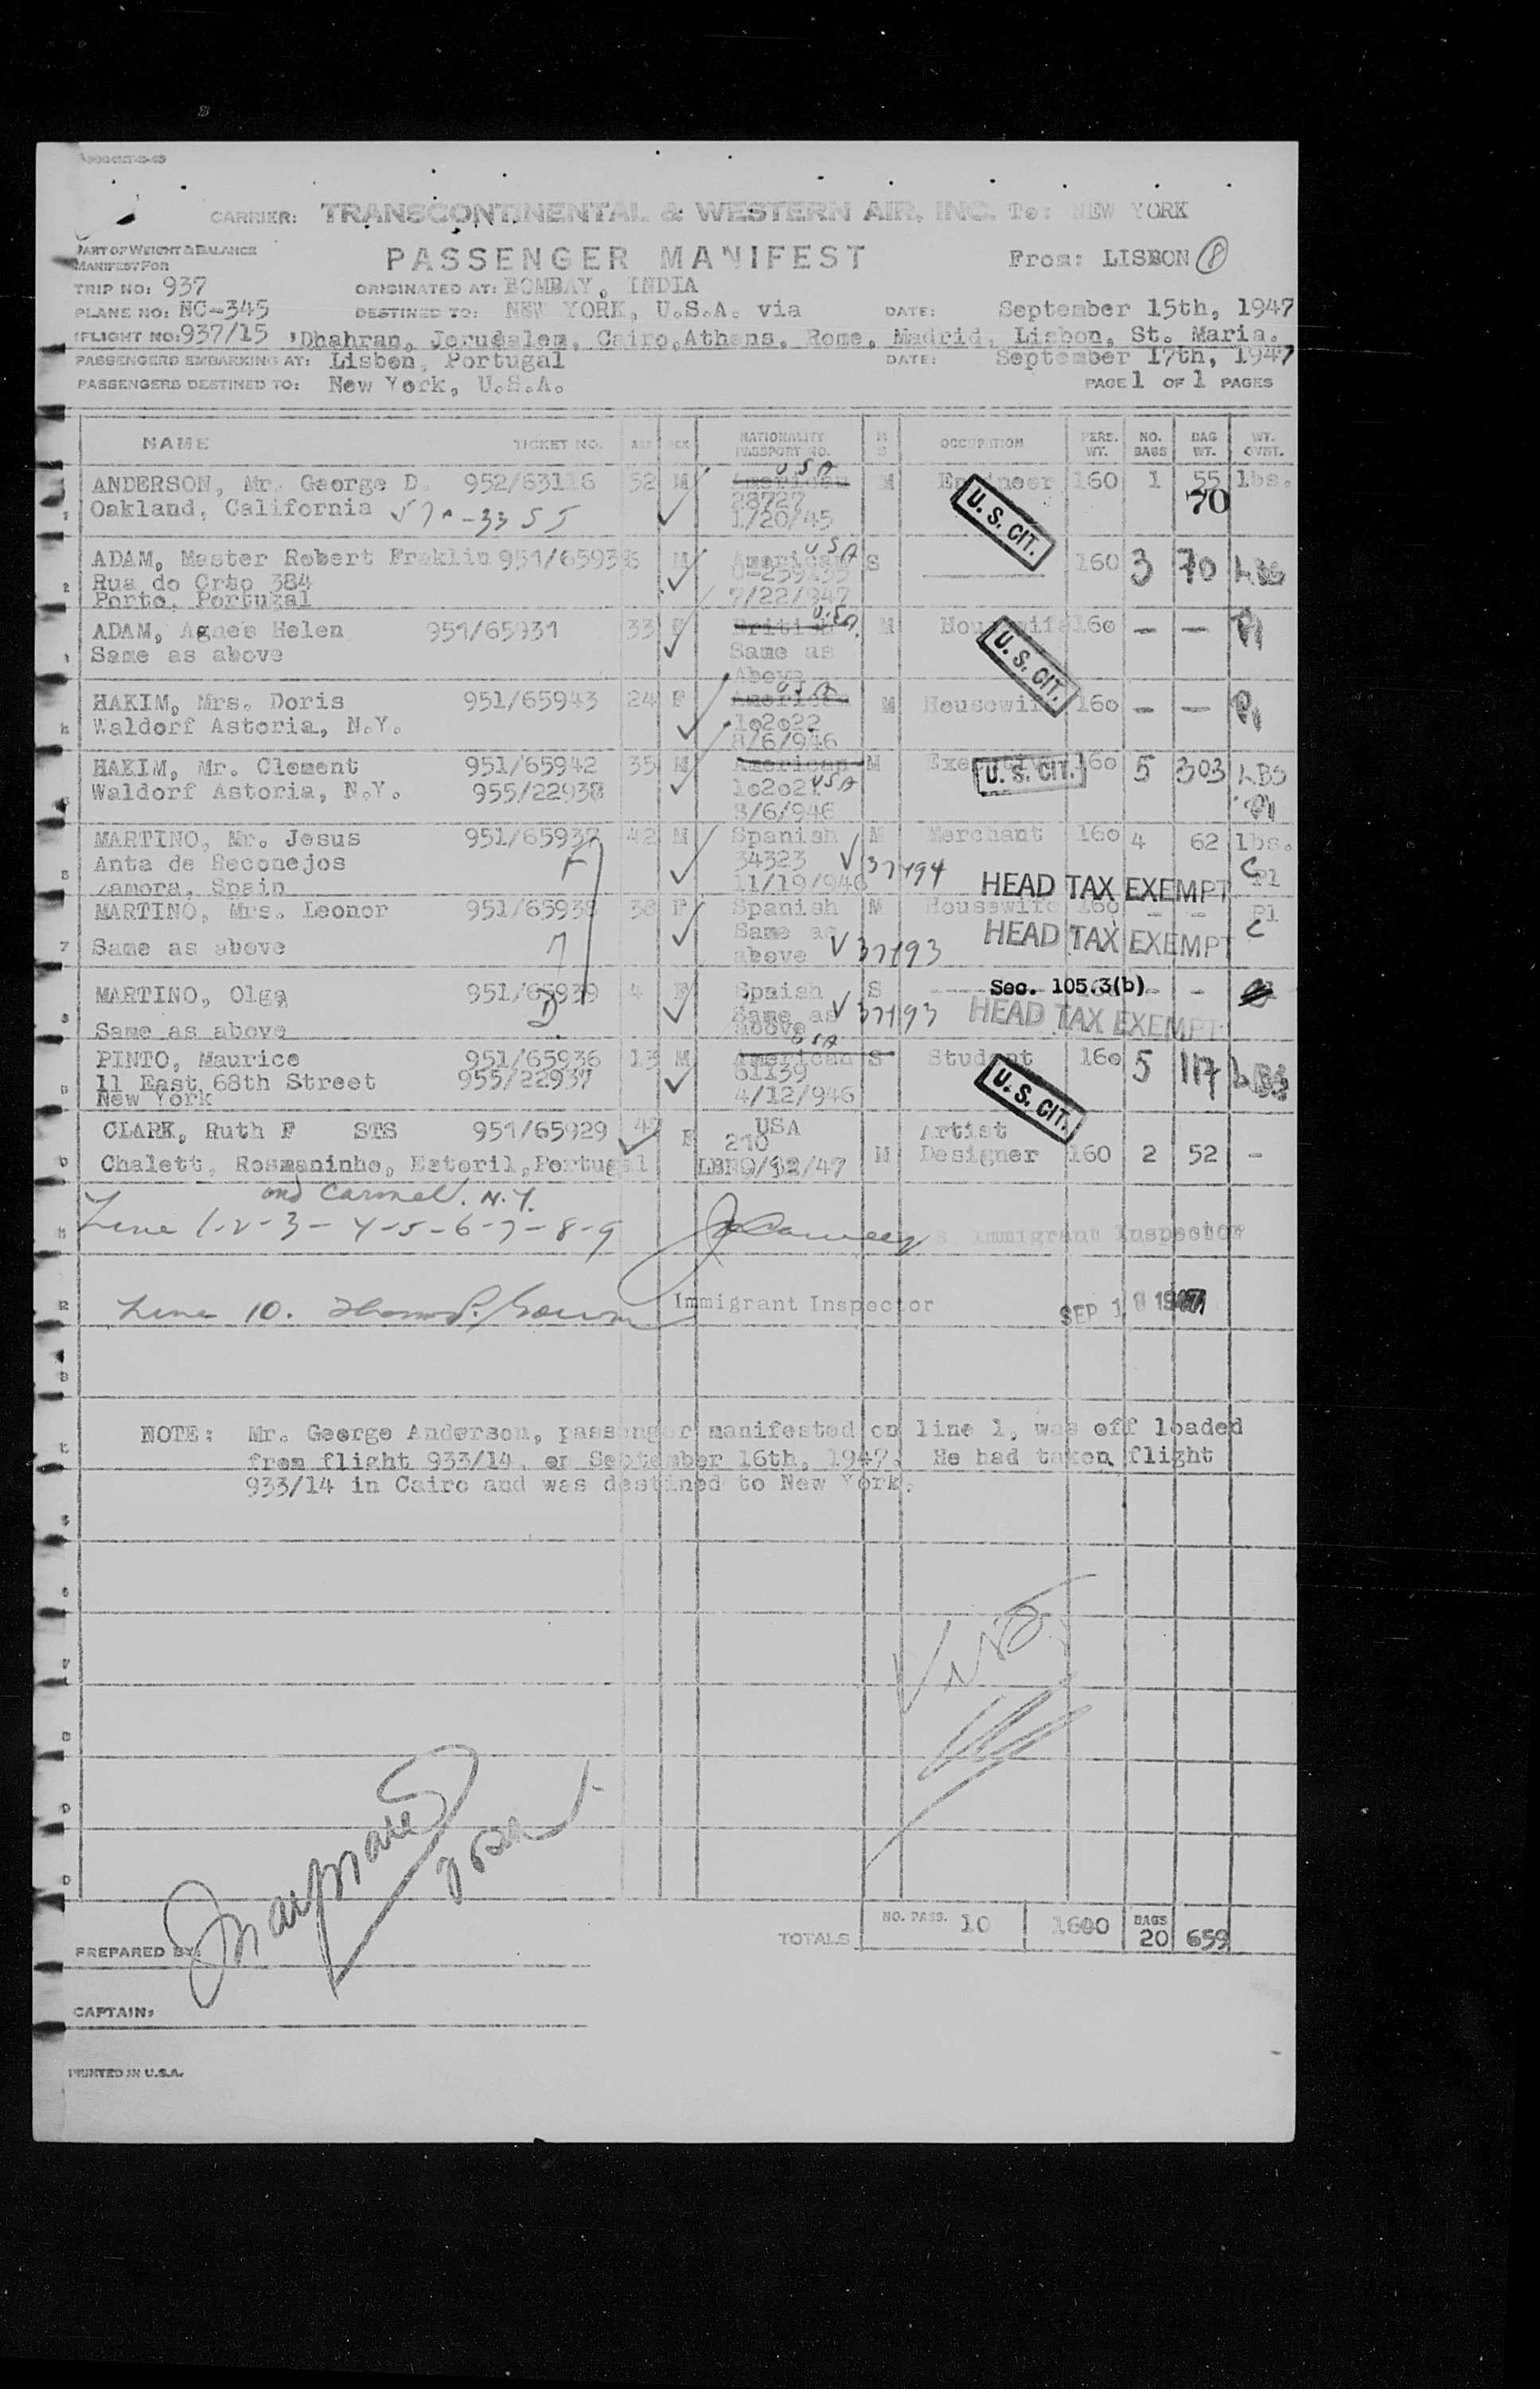 CARRIER: TRANSCONTINENTAL & WESTERN AIR, INC. To: NEW YORK
PART OF WEIGHT & BALANCE
MANIFEST FOR
PASSENGER MANIFEST From: LISBON 8
TRIP NO: 937 ORIGINATED AT: BOMBAY, INDIA
PLANE NO: NC-345 DESTINED TO: NEW YORK, U.S.A. via DATE: September 15th, 1947
FLIGHT NO: 937/15 Dhahran, Jerusalem, Cairo, Athens, Rome, Madrid, Lisbon, St. Maria.
PASSENGERS EMBARKING AT: Lisbon, Portugal DATE: September 17th, 1947
PASSENGERS DESTINED TO: New York, U.S.A. PAGE 1 OF 1 PAGES
NAME TICKET NO. AGE SEX NATIONALITY PASSPORT NO. M S OCCUPATION PERS. WT. NO. BAGS BAG WT. WT. OVRT.
ANDERSON, Mr. George D. 952/63116 52 M American USA M Engineer 160 1 55 lbs.
28727 70
Oakland, California 1/20/45 U. S. CIT.
ADAM, Master Robert Fraklin 951/65936 M American USA S 160 3 70 LBS
Rua do Crto 384
Porto, Portugal 7/22/947
ADAM, Agnes Helen 951/65931 33 F British U.S.A. M Housewife 160 — — Pl
Same as above Same as U. S. CIT.
Above
HAKIM, Mrs. Doris 951/65943 24 F American USA M Housewife 160 — — Pl
Waldorf Astoria, N.Y. 102022
8/6/946
HAKIM, Mr. Clement 951/65942 35 M American M Executive 160 5 303 LBS
Waldorf Astoria, N.Y. 955/22938 102021 USA U. S. CIT. Pl
8/6/946
MARTINO, Mr. Jesus 951/65937 42 M Spanish M Merchant 160 4 62 lbs.
Anta de Reconejos 34323 C
Zamora, Spain 11/19/946 HEAD TAX EXEMPT Pl
MARTINO, Mrs. Leonor 951/65938 38 F Spanish M Housewife 160 - - Pl
Same as C
Same as above above HEAD TAX EXEMPT
MARTINO, Olga 951/65939 4 F Spnish S Sec. 105.3(b) - -
Same as above Same as above HEAD TAX EXEMPT
PINTO, Maurice 951/65936 13 M American USA S Student 160 5 117 LBS
11 East 68th Street 955/22937 61139
New York 4/12/946 U. S. CIT.
CLARK, Ruth F STS 951/65929 F USA Artist
210
Chalett, Rosmaninho, Estoril, Portugal M Designer 160 2 52 -
and Carmel. N.Y.
Line 1-2-3-4-5-6-7-8-9 Immigrant Inspector
Line 10. Immigrant Inspector SEP 18 1947
NOTE: Mr. George Anderson, passenger manifested on line 1, was off loaded
from flight 933/14, on September 16th, 1947. He had taken flight
933/14 in Cairo and was destined to New York.
TOTALS NO. PASS. 10 1600 BAGS 20 659
PREPARED BY:
CAPTAIN:
PRINTED IN U.S.A.